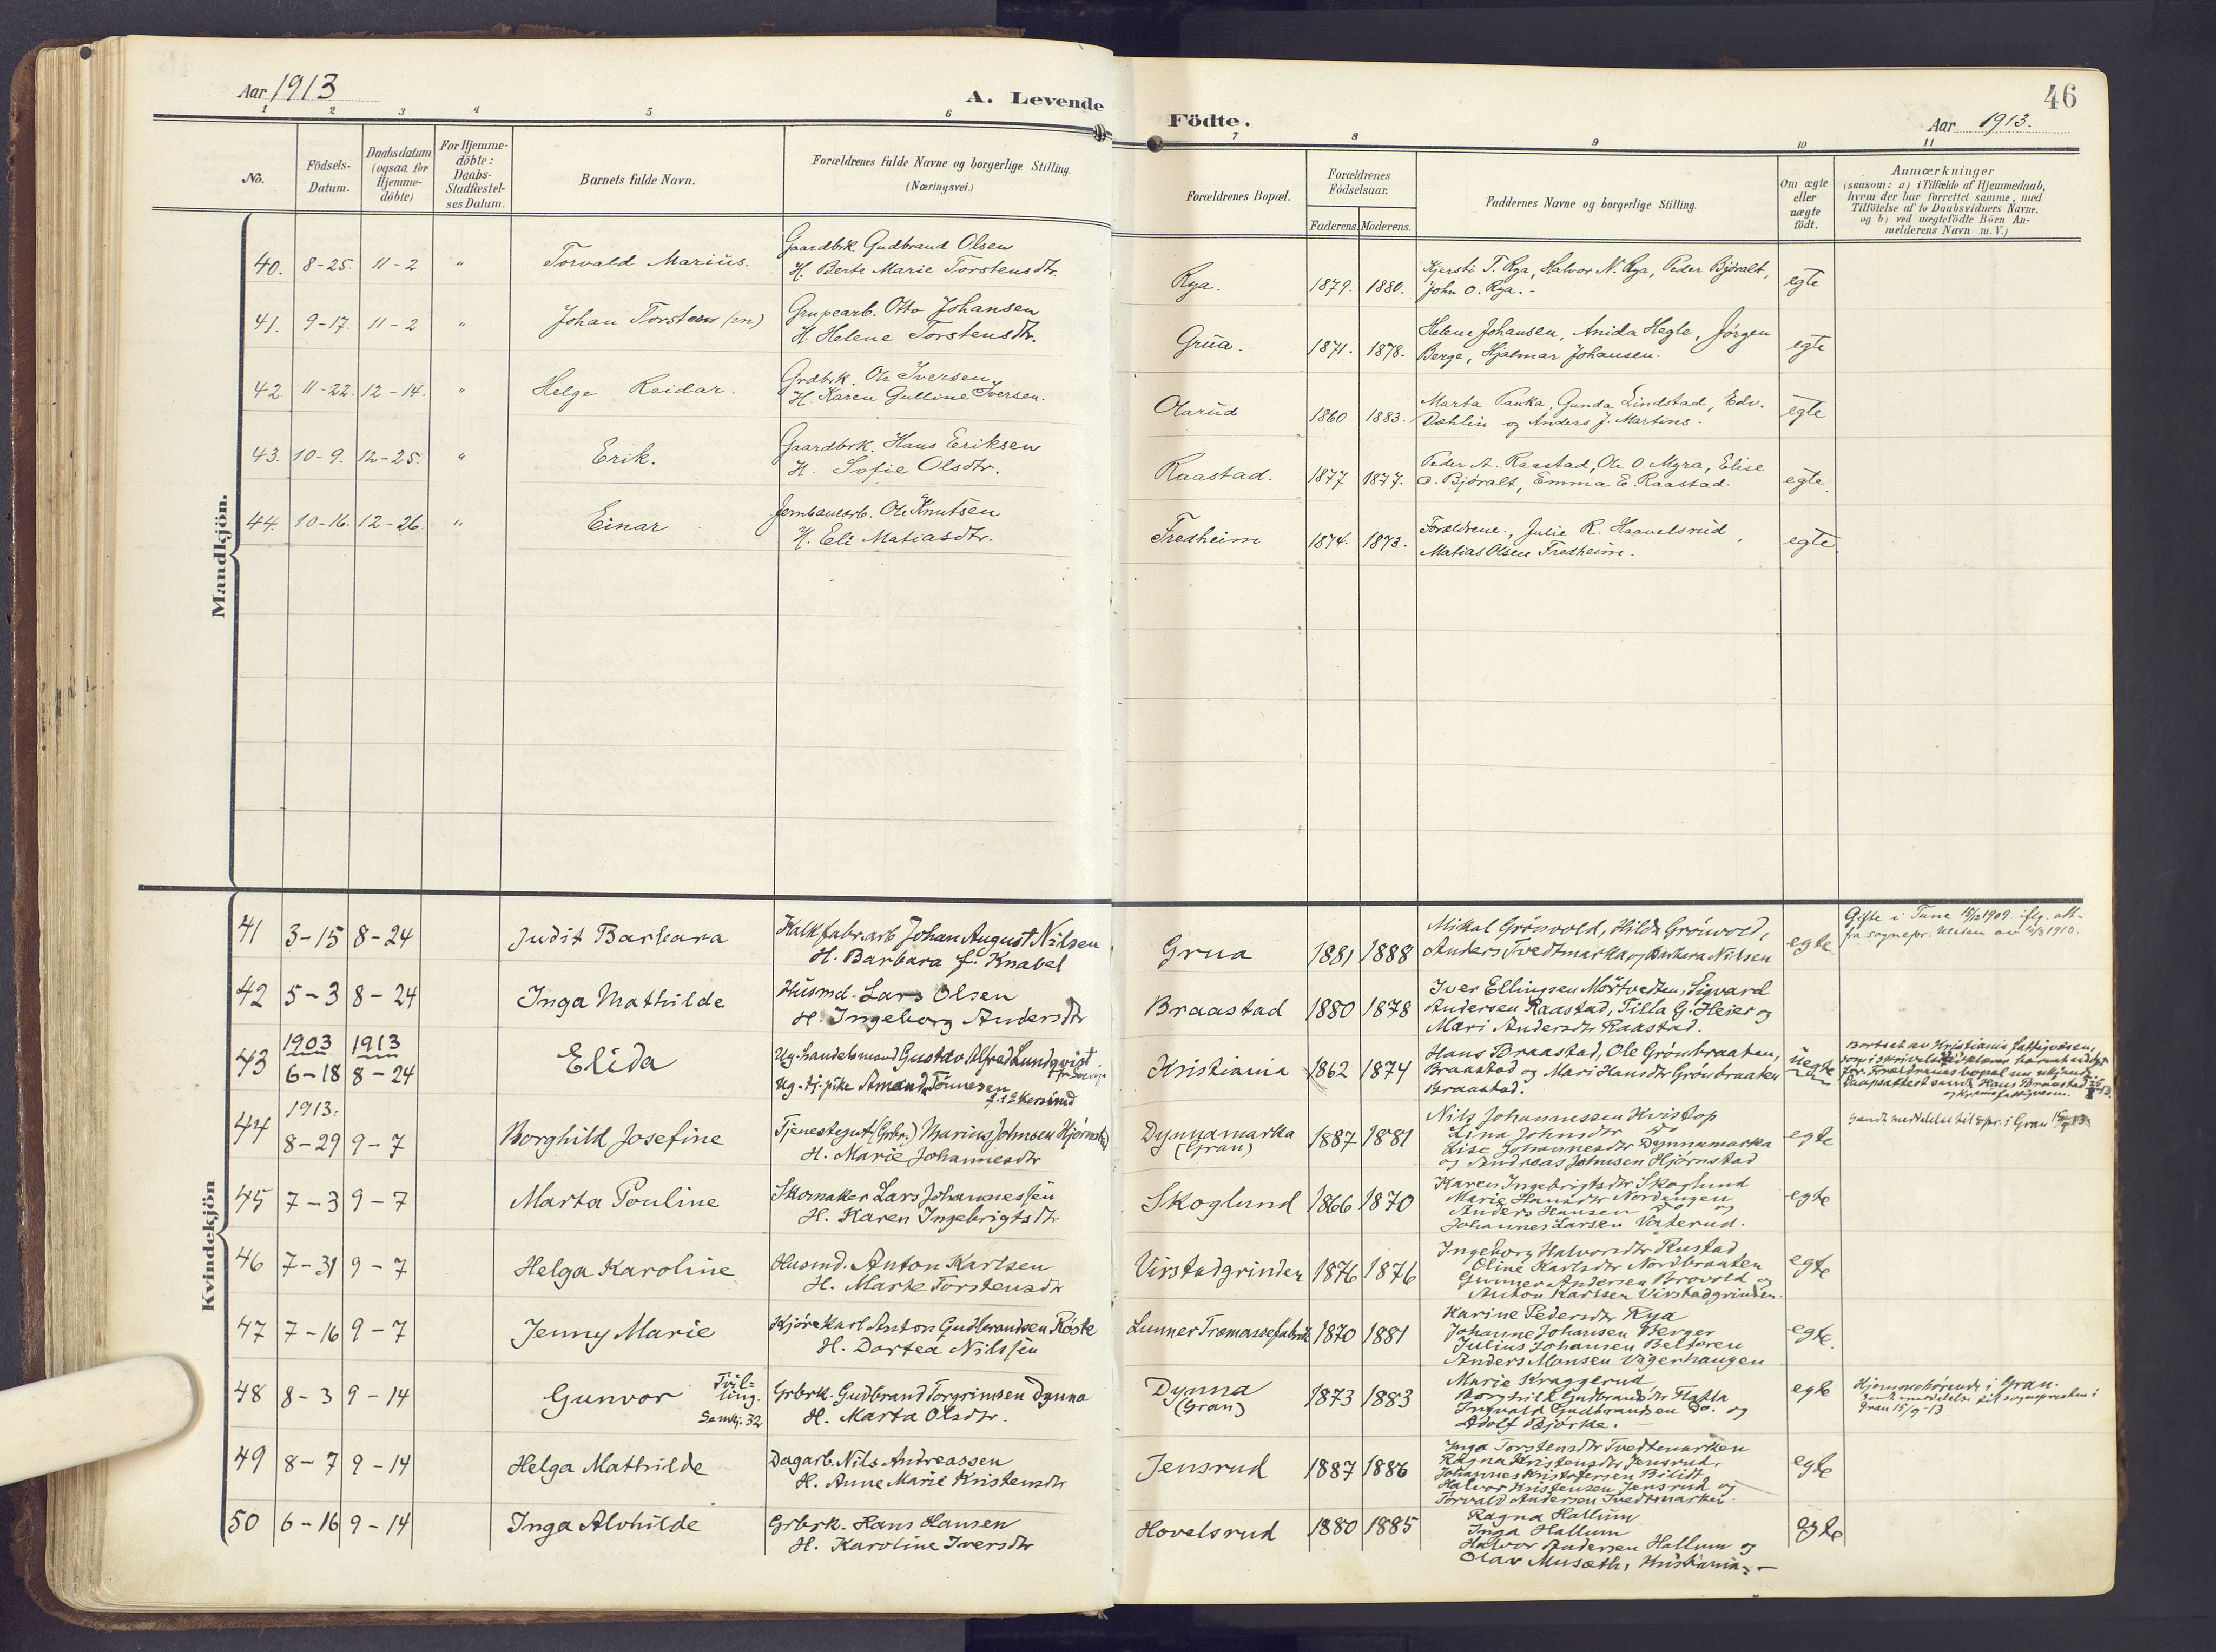 Aar 1913
A. Levende
1 2 3 4 5 6
No.
Födsels-
Datum.
Daabsdatum
(ogsaa for
Hjemme-
döbte)
For Hjemme-
döbte:
Daabs-
Stadfæstel-
ses Datum.
Barnets fulde Navn.
Forældrenes fulde Navne og borgerlige Stilling.
(Næringsvei.)
Mandkjön.
40. 8-25. 11-2 " Torvald Marius.
Gaardbrk. Gudbrand Olsen
H. Berte Marie Torstensdtr.
41. 9-17. 11-2 " Johan Torsten (sen)
Grupearb. Otto Johansen
H. Helene Torstensdtr.
42. 11-22. 12-14. " Helge Reidar.
Grdbrk. Ole Iversen
H. Karen Gulline Iversen.
43. 10-9. 12-25. " Erik.
Gaardbrk. Hans Eriksen
H. Sofie Olsdtr.
44. 10-16. 12-26. " Einar
Jernbanearb. Ole Knutsen
H. Eli Matiasdtr.
Kvindekjön
41 3-15 8-24 Judit Barbara
Kalkfabr.arb Johan August Nilsen
H. Barbara f. Knabel
42 5-3 8-24 Inga Mathilde
Husmd. Lars Olsen
H. Ingeborg Andersdtr
43 1903 1913
6-18 8-24 Elida
Ug. handelsmand Gustav Alfred Lundqvist
Ug. tj. pike Amanda Tönnesen
f. i Ekersund
44 1913.
8-29 9-7 Borghild Josefine
Tjenestegut (Grbr.) Marius Johnsen Hjørnstad
H. Marie Johannesdtr
45 7-3 9-7 Marta Pouline
Skomaker Lars Johannessen
H. Karen Ingebrigtsdtr
46 7-31 9-7 Helga Karoline
Husmd. Anton Karlsen
H. Marte Torstensdtr
47 7-16 9-7 Jenny Marie
Kjøre Karl Anton Gudbrandsen Röste
H. Dortea Nilssen
48 8-3 9-14 Gunvor Tvil-
ling.
Samkj. 32
Grbrk. Gudbrand Torgrimsen Dynna
H. Marta Olsdtr.
49 8-7 9-14 Helga Mathilde
Dagarb. Nils Andreassen
H. Anne Marie Kristensdtr
50 6-16 9-14 Inga Alvhilde
Grbrk. Hans Hansen
H. Karoline Iversdtr
Födte.
46
Aar 1913.
7 8 9 10 11
Forældrenes Bopæl.
Forældrenes
Födselsaar.
Faderens. Moderens.
Faddernes Navne og borgerlige Stilling.
Om ægte
eller
uægte
födt.
Anmærkninger
(saasom: a) i Tilfælde af Hjemmedaab,
hvem der har forrettet samme, med
Tilföielse af to Daabsvidners Navne.
og b) ved uægtefödte Börn An-
melderens Navn m. V.)
Rya. 1879. 1880.
Kjersti T. Rya, Halvor N. Rya, Peder Björalt,
John O. Rya.-
egte
Grua. 1871. 1878.
Helene Johansen, Anida Hegle, Jörgen
Berge, Hjalmar Johansen.
egte
Olarud 1860 1883.
Marta Pauka, Gunda Lindstad, Edv.
Dæhlin og Anders J. Martins.
egte
Raastad. 1877 1877.
Peder A. Raastad, Ole O. Myra, Elise
O. Björalt, Emma E. Raastad.
egte
Fredheim 1874. 1873.
Forældrene, Julie R. Haavelsrud,
Matias Olsen Fredheim.
egte
Grua 1881 1888
Mikal Grönvold, Hilda Grönvold,
Anders Tvedtmarka og Barbara Nilsen
egte
Gifte i Tune 1909 iflg. att-
fra sognepr. 1910.
Braastad 1880 1878
Iver Ellingsen Mörtvedten, Sigvard
Andersen Raastad, Tilla G. Heier og
Mari Andersdtr Raastad.
Kristiania 1862 1874
Hans Braastad, Ole Grönbraaten,
Braastad og Mari Hansdtr Grönbraaten
Braastad.
uegte
Bortsat av Kristiania fattigvæsen,
som i skrivelse erklærer barnet uegte
for. Forældrenes bopæl nu ukjendt
Daapsattest sendt Hans Braastad
Dynnamarka
(Gran) 1887 1881
Nils Johannessen Kvistop
Lina Johnsdtr Do
Lise Johannesdtr Dynnamarka
og Andreas Johnsen Hjørnstad
egte
Sendt meddelelse til spr. i Gran
Skoglund 1866 1870
Karen Ingebrigtsdtr Skoglund
Marie Hansdtr Nordengen
Anders Hansen Do og
Johannes Larsen Vaterud.
egte
Virstadgrinden 1876 1876
Ingeborg Halvorsdtr Rustad
Oline Karlsdtr Nordbraaten
Gunner Andersen Brovold og
Anton Karlsen Virstadgrinden.
egte
Lunner Træmassefabrik 1870 1881
Karine Pedersdtr Rya
Johanne Johansen Berger
Julius Johansen Belteren
Anders Monsen Vägerhaugen
egte.
Dynna
(Gran) 1873 1883
Marie Kraggerud
Borghild Gudbrandsdtr Flatla
Ingvald Gudbrandsen Do. og
Adolf Bjørke.
egte
Hjemmehörende i Gran.
Sendt meddelelse til sognepresten i
Gran 15/9-13
Jensrud 1887 1886
Inga Torstensdtr Tvedtmarken
Ragna Kristensdtr Jensrud,
Johannes Kristofersen Bilidt
Halvor Kristensen Jensrud og
Torvald Andersen Tvedtmarken.
egte
Hovelsrud 1880 1885
Ragna Hallum
Inga Hallum
Halvor Andersen Hallum og
Olav Musæth, Kristiania.-
egte